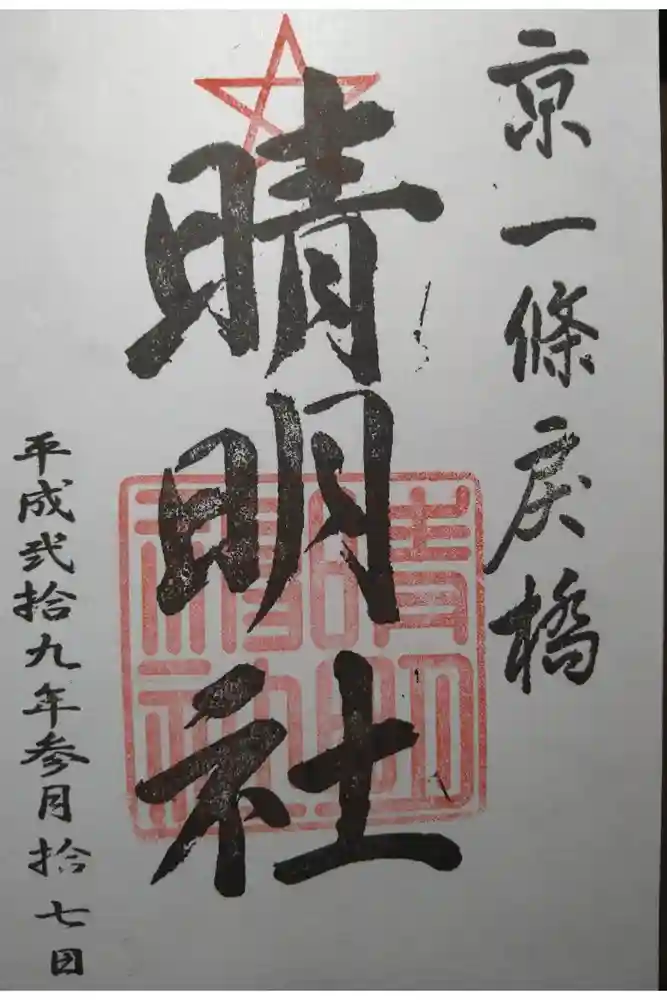 京一條戻橋
晴明社
晴明神社
平成弐拾九年参月拾七日